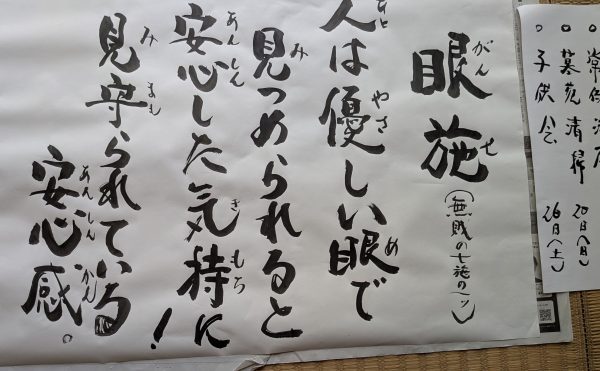 眼施(無財の七施の一ツ)
がんせ
人は優しい眼で
ひと やさ め
見つめられると
み
安心した気持に!
あんしん きもち
見守られている
みまも
安心感。
あんしんかん
墓苑清掃 20日(日)
子供会 26日(土)